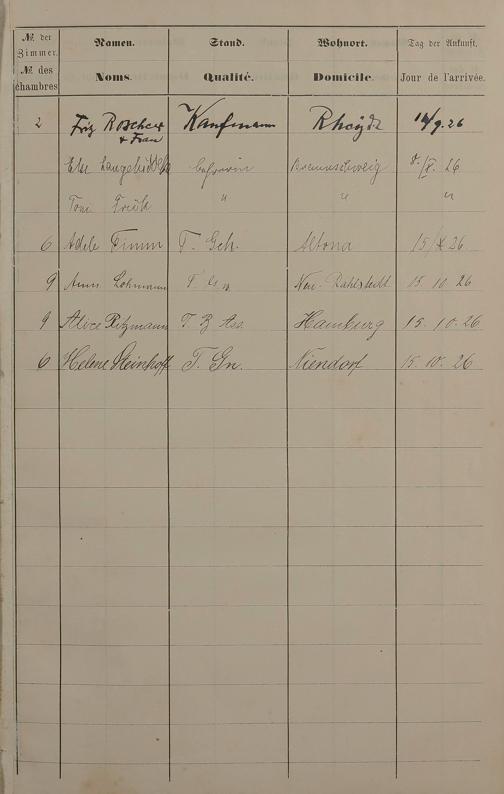 № der Zimmer. Namen. Stand. Wohnort. Tag der Ankunft.
№ des chambres Noms. Qualité. Domicile. Jour de l'arrivée.
2 Fritz Roscher Kaufmann Rheydt 14/9.26
+ Frau
Else Braunschweig /X. 26
Toni " " "
6 Adele Timm T. Geh. Altona 15/X 26
9 Anna Lohmann Neu-Rahlstedt 15 10 26
9 Alice Ritzmann T. B. Ass. Hamburg 15. 10. 26
6 Helene Steinhoff T. Gn. Niendorf 15. 10. 26